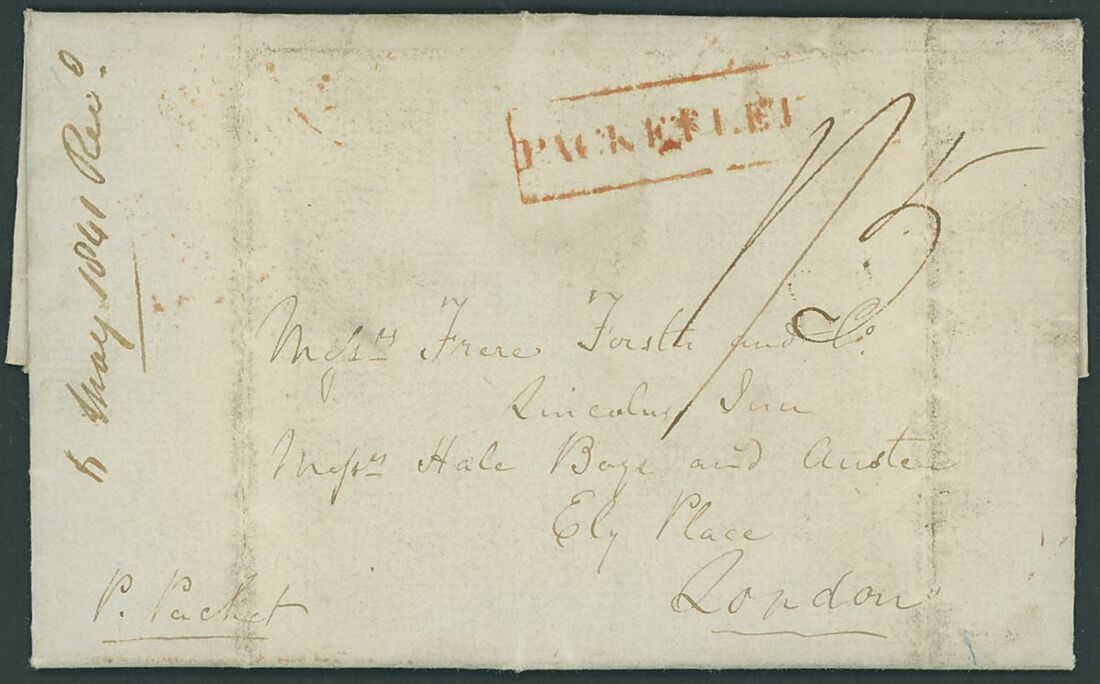 PACKET LET
1/5
Messrs Frere Forster and Co.
Lincolns Inn
Messrs Hale Boys and Austen
Ely Place
London
P. Packet
May 1841 Recd.